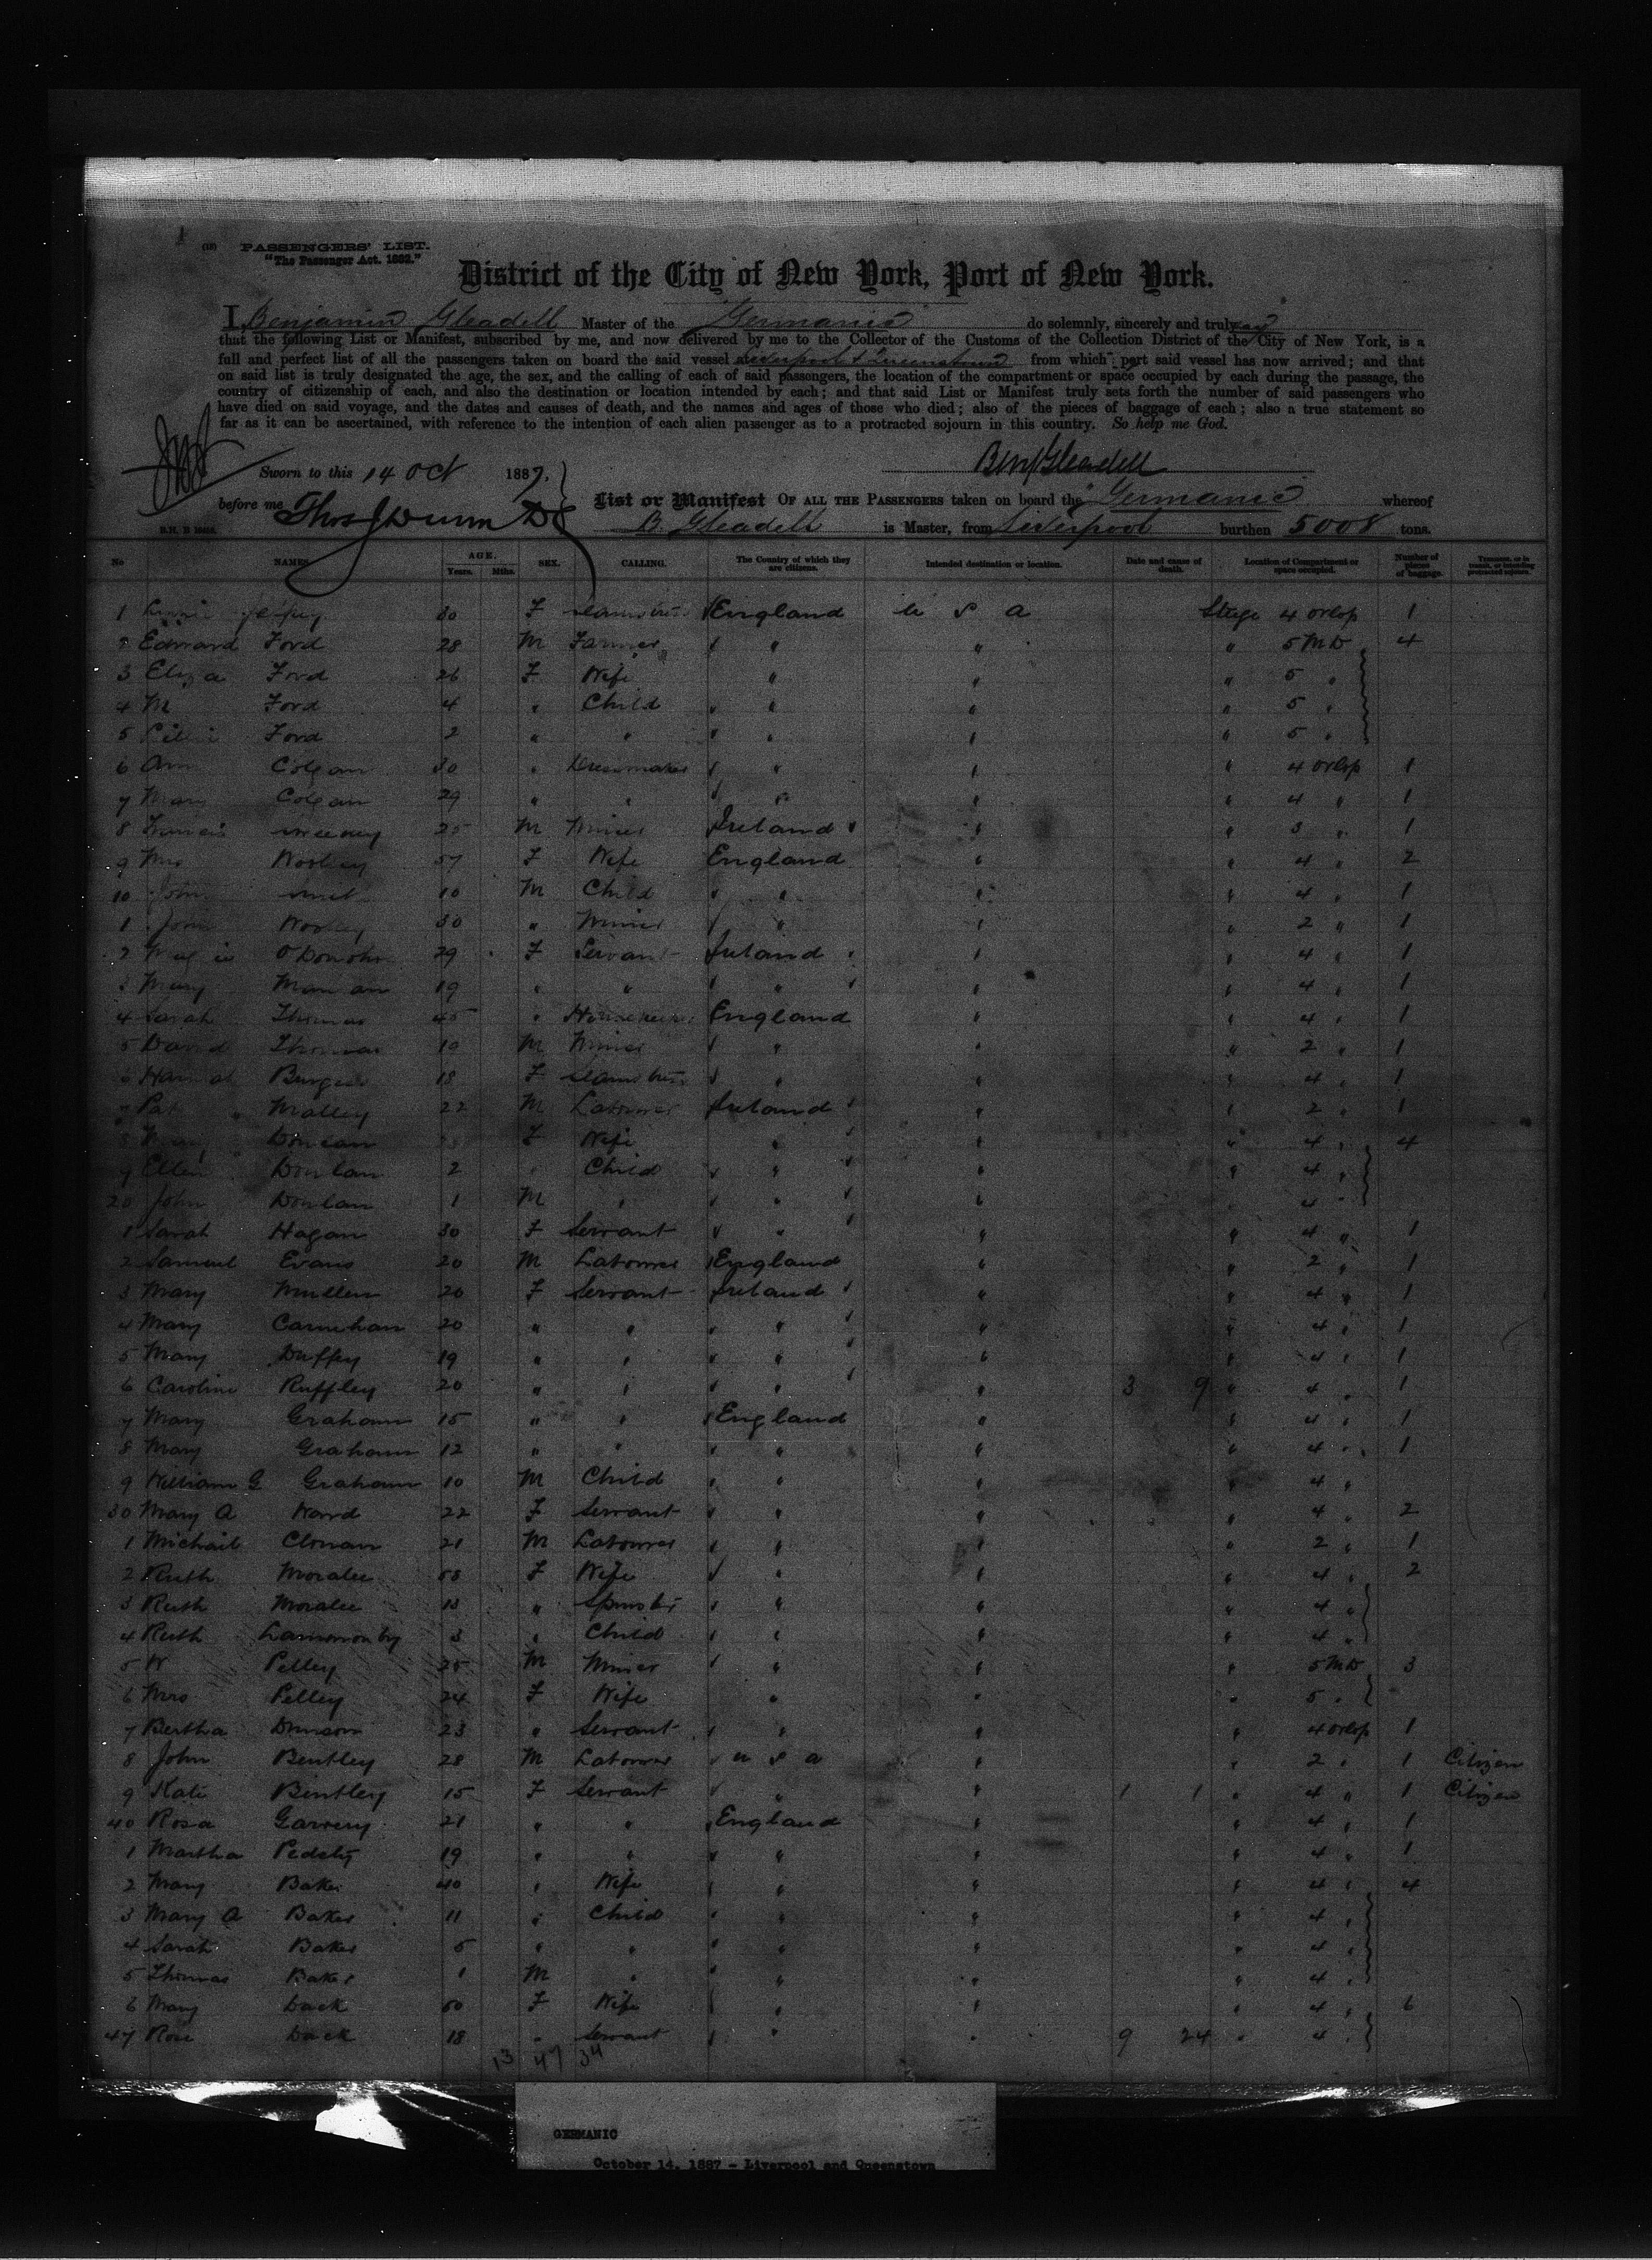 (18) PASSENGERS' LIST.
"The Passenger Act. 1882."
District of the City of New York, Port of New York.
I, Benjamin Gleadell Master of the Germanic do solemnly, sincerely and truly say
that the following List or Manifest, subscribed by me, and now delivered by me to the Collector of the Customs of the Collection District of the City of New York, is a
full and perfect list of all the passengers taken on board the said vessel Liverpool & Queenstown from which port said vessel has now arrived; and that
on said list is truly designated the age, the sex, and the calling of each of said passengers, the location of the compartment or space occupied by each during the passage, the
country of citizenship of each, and also the destination or location intended by each; and that said List or Manifest truly sets forth the number of said passengers who
have died on said voyage, and the dates and causes of death, and the names and ages of those who died; also of the pieces of baggage of each; also a true statement so
far as it can be ascertained, with reference to the intention of each alien passenger as to a protracted sojourn in this country. So help me God.
Benj Gleadell
Sworn to this 14 Oct 1887.
before me Thos J Dunn DC
List or Manifest OF ALL THE PASSENGERS taken on board the Germanic whereof
B. Gleadell is Master, from Liverpool burthen 5008 tons.
No NAMES AGE. Years. Mths. SEX. CALLING. The Country of which they are citizens. Intended destination or location. Date and cause of death. Location of Compartment or space occupied. Number of pieces of baggage.
1 30 F England U S A Stage 4 orlop 1
2 Edward Ford 28 M Farmer " " " 5 MD 4
3 Eliza Ford 26 F Wife " " " 5 "
4 M Ford 4 " Child " " " 5 "
5 Ford 2 " " " " " 5 "
6 Ann Colgan 30 " Dressmaker " " " 4 orlop 1
7 Mary Colgan 29 " " " " " 4 " 1
8 Francis 25 M Miner Ireland " " 3 " 1
9 Mrs 57 F Wife England " " 4 " 2
10 John 10 M Child " " " 4 " 1
1 John 30 " Miner " " " 2 " 1
2 O'Donohu 29 F Servant Ireland " " 4 " 1
3 Mary 19 " " " " " 4 " 1
4 Sarah Thomas 45 " England " " 4 " 1
5 David Thomas 19 M Miner " " " 2 " 1
6 Hannah Burgess 18 F " " " 4 " 1
7 Pat Malley 22 M Labourer Ireland " " 2 " 1
8 Donlan F Wife " " " 4 " 4
9 Ellen Donlan 2 " Child " " " 4 "
20 John Donlan 1 M " " " 4 "
1 Sarah Hagan 30 F Servant " " " 4 " 1
2 Samuel Evans 20 M Labourer England " " 2 " 1
3 Mary Mullen 20 F Servant Ireland " " 4 " 1
4 Mary Carnehan 20 " " " " " 4 " 1
5 Mary Duffey 19 " " " " " 4 " 1
6 Caroline Ruffley 20 " " " " 3 9 " 4 " 1
7 Mary Graham 15 " " England " " 4 " 1
8 Mary Graham 12 " " " " " 4 " 1
9 William G Graham 10 M Child " " " 4 "
30 Mary A Ward 22 F Servant " " " 4 " 2
1 Michail Clonan 21 M Labourer " " " 2 " 1
2 Ruth Moralee F Wife " " " 4 " 2
3 Ruth Moralee " Spinster " " " 4 "
4 Ruth Lamonby 3 " Child " " " 4 "
5 W Pelley 25 M Miner " " " 5 MD 3
6 Mrs Pelley 24 F Wife " " " 5 "
7 Bertha 23 " Servant " " " 4 orlop 1
8 John Bentley 28 M Labourer U S A " " 2 " 1 Citizen
9 Kate Bentley 15 F Servant " " 1 1 " 4 " 1 Citizen
40 Rosa 21 " " England " " 4 " 1
1 Martha 19 " " " " " 4 " 1
2 Mary Baker 40 " Wife " " " 4 " 4
3 Mary A Baker 11 " Child " " " 4 "
4 Sarah Baker 5 " " " " " 4 "
5 Thomas Baker 1 M " " " " 4 "
6 Mary Dack 50 F Wife " " " 4 " 6
47 Rose Dack 18 " Servant " " 9 24 " 4 "
13 47 34
GERMANIC
October 14, 1887 - Liverpool and Queenstown